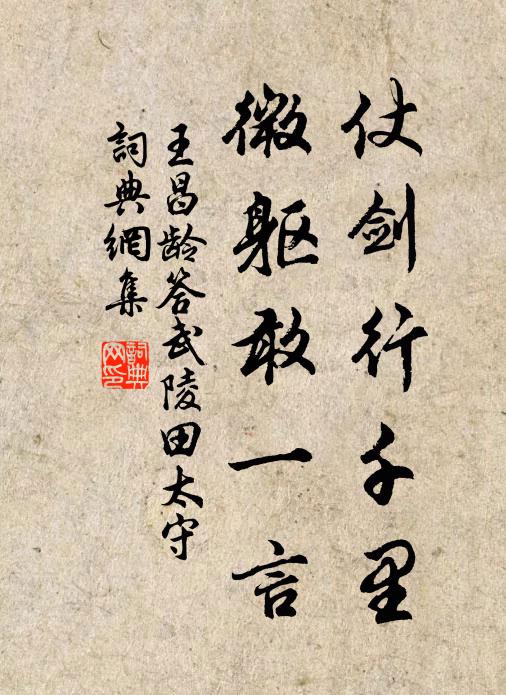 仗剑行千里
微躯敢一言
王昌龄答武陵田太守
詞典網集
詞典网印